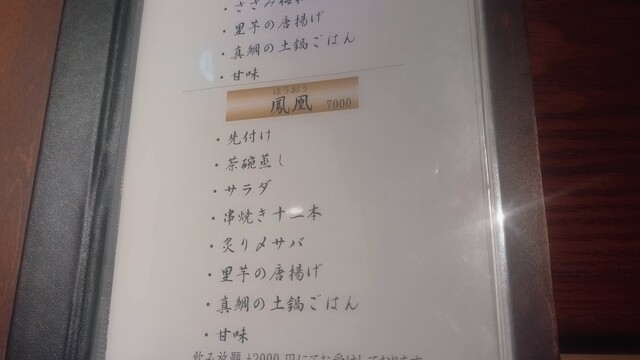 ・ささみ梅
・里芋の唐揚げ
・真鯛の土鍋ごはん
・甘味
ほうおう
鳳凰 7000
・先付け
・茶碗蒸し
・サラダ
・串焼き十二本
・炙り〆サバ
・里芋の唐揚げ
・真鯛の土鍋ごはん
・甘味
飲み放題 +2000 円にてお受けしております